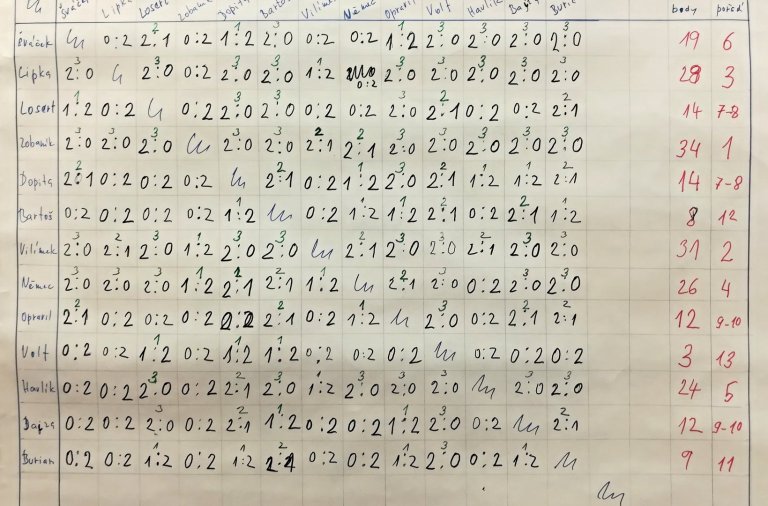 Šváček Lipka Losert Zobaník Dopita Bartoš Vilímek Němec Opravil Volf Havlík Burian
body pořadí
Šváček 0:2 2:1 2 0:2 1:2 1 2:0 3 0:2 0:2 1:2 1 2:0 3 2:0 3 2:0 3 2:0 3 19 6
Lipka 2:0 3 2:0 3 0:2 2:0 3 2:0 3 1:2 1 0:2 2:0 3 2:0 3 2:0 3 2:0 3 2:0 3 28 3
Losert 1:2 1 0:2 0:2 2:0 3 2:0 3 0:2 0:2 2:0 3 2:1 2 0:2 0:2 2:1 2 14 7-8
Zobaník 2:0 3 2:0 3 2:0 3 2:0 3 2:0 3 2:1 2 2:1 2 2:0 3 2:0 3 2:0 3 2:0 3 2:0 3 34 1
Dopita 2:1 2 0:2 0:2 0:2 2:1 2 0:2 1:2 1 2:0 3 2:1 2 1:2 1 1:2 1 2:1 2 14 7-8
Bartoš 0:2 0:2 0:2 0:2 1:2 1 0:2 1:2 1 1:2 1 2:1 2 0:2 2:1 2 1:2 1 8 12
Vilímek 2:0 3 2:1 2 2:0 3 1:2 1 2:0 3 2:0 3 2:1 2 2:0 3 2:0 3 2:1 2 2:0 3 2:0 3 31 2
Němec 2:0 3 2:0 3 2:0 3 1:2 1 2:1 2:1 2 1:2 1 2:1 2 2:0 3 0:2 2:0 3 2:0 3 26 4
Opravil 2:1 2 0:2 0:2 0:2 0:2 2:1 2 0:2 1:2 1 2:0 3 0:2 2:1 2 2:1 2 12 9-10
Volf 0:2 0:2 1:2 1 0:2 1:2 1 1:2 1 0:2 0:2 0:2 0:2 0:2 0:2 3 13
Havlík 0:2 0:2 2:0 3 0:2 2:1 2 2:0 3 1:2 1 2:0 3 2:0 3 2:0 3 2:0 3 2:0 3 24 5
0:2 0:2 2:0 3 0:2 2:1 2 1:2 1 0:2 0:2 1:2 1 2:0 3 0:2 2:1 2 12 9-10
Burian 0:2 0:2 1:2 1 0:2 1:2 1 2:1 2 0:2 0:2 1:2 1 2:0 3 0:2 1:2 1 9 11